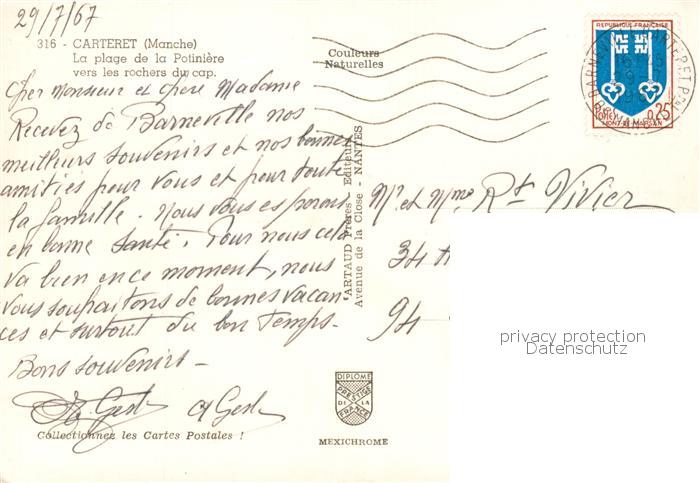 29/7/67
316 - CARTERET (Manche)
La plage de la Potinière
vers les rochers du cap.
Couleurs
Naturelles
REPUBLIQUE FRANÇAISE
0,25
MONT-DE-MARSAN
Cher Monsieur et chère Madame
Recevez de Barneville nos
meilleurs souvenirs et nos bonnes
amitiés pour vous et pour toute
la famille. Nous vous esperons
en bonne santé. Pour nous cela
va bien en ce moment, nous
vous souhaitons de bonnes vacan-
ces et surtout du bon temps.
Bons souvenirs -
ARTAUD Frères - Editeurs
Avenue de la Close - NANTES
Mr et Mme Rt Vivier
34
94
privacy protection
Datenschutz
DIPLOME
PRESTIGE
DE LA
FRANCE
Collectionnez les Cartes Postales !
MEXICHROME